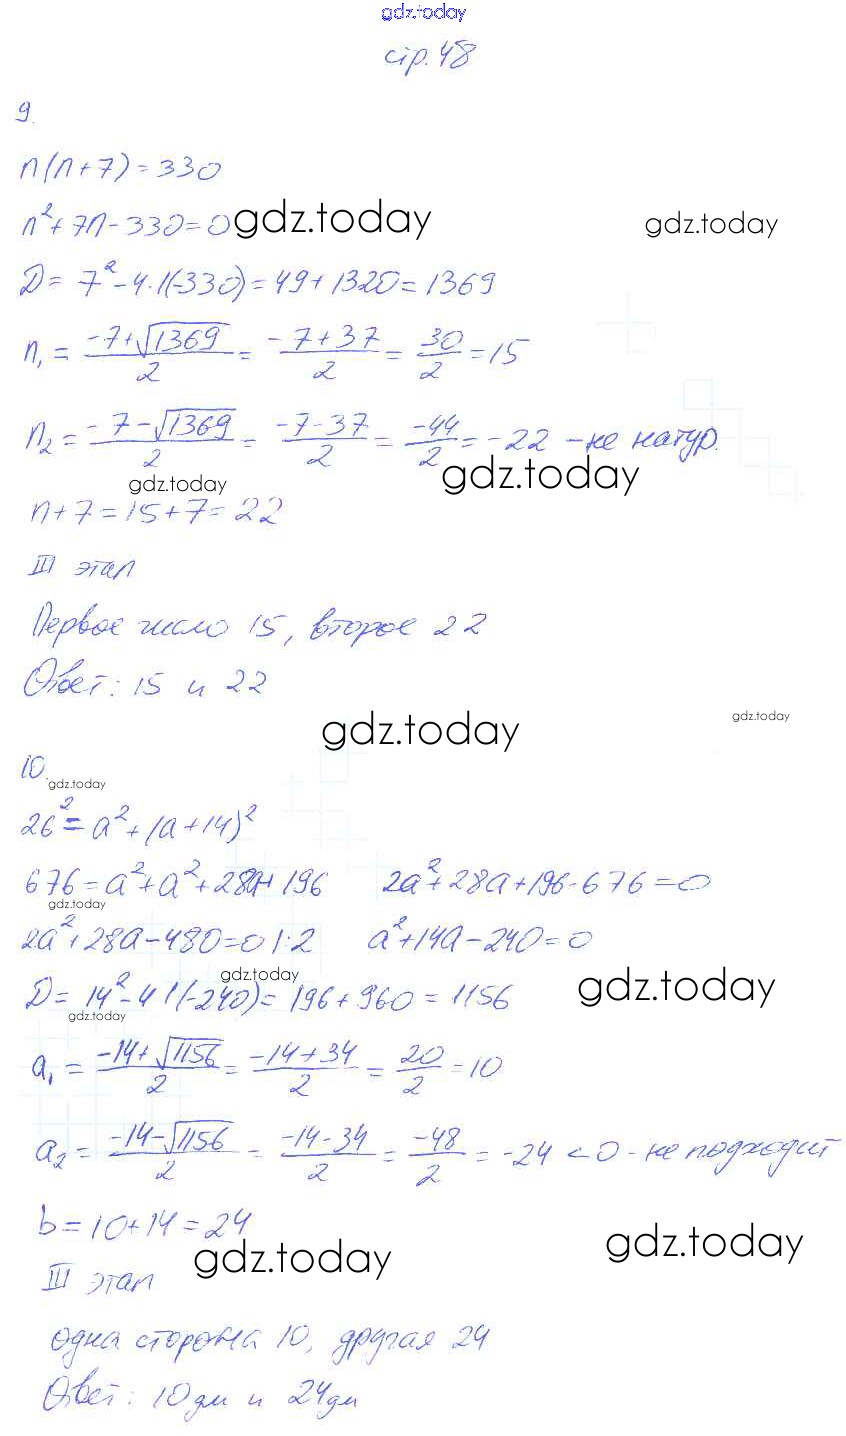 gdz.today
стр. 48
9.
n(n+7)=330
n²+7n-330=0 gdz.today gdz.today
D=7²-4·1(-330)=49+1320=1369
n₁ = (-7+√1369)/2 = (-7+37)/2 = 30/2 = 15
n₂ = (-7-√1369)/2 = (-7-37)/2 = (-44)/2 = -22 - не натур.
gdz.today gdz.today
n+7=15+7=22
III этап
Первое число 15, второе 22
Ответ: 15 и 22
gdz.today gdz.today
10.
gdz.today
26²=a²+(a+14)²
676=a²+a²+28a+196 2a²+28a+196-676=0
gdz.today
2a²+28a-480=0 |:2 a²+14a-240=0
gdz.today gdz.today
D=14²-4·1(-240)=196+960=1156
gdz.today
a₁ = (-14+√1156)/2 = (-14+34)/2 = 20/2 = 10
a₂ = (-14-√1156)/2 = (-14-34)/2 = (-48)/2 = -24 <0 - не подходит
b=10+14=24
gdz.today gdz.today
III этап
одна сторона 10, другая 24
Ответ: 10дм и 24дм